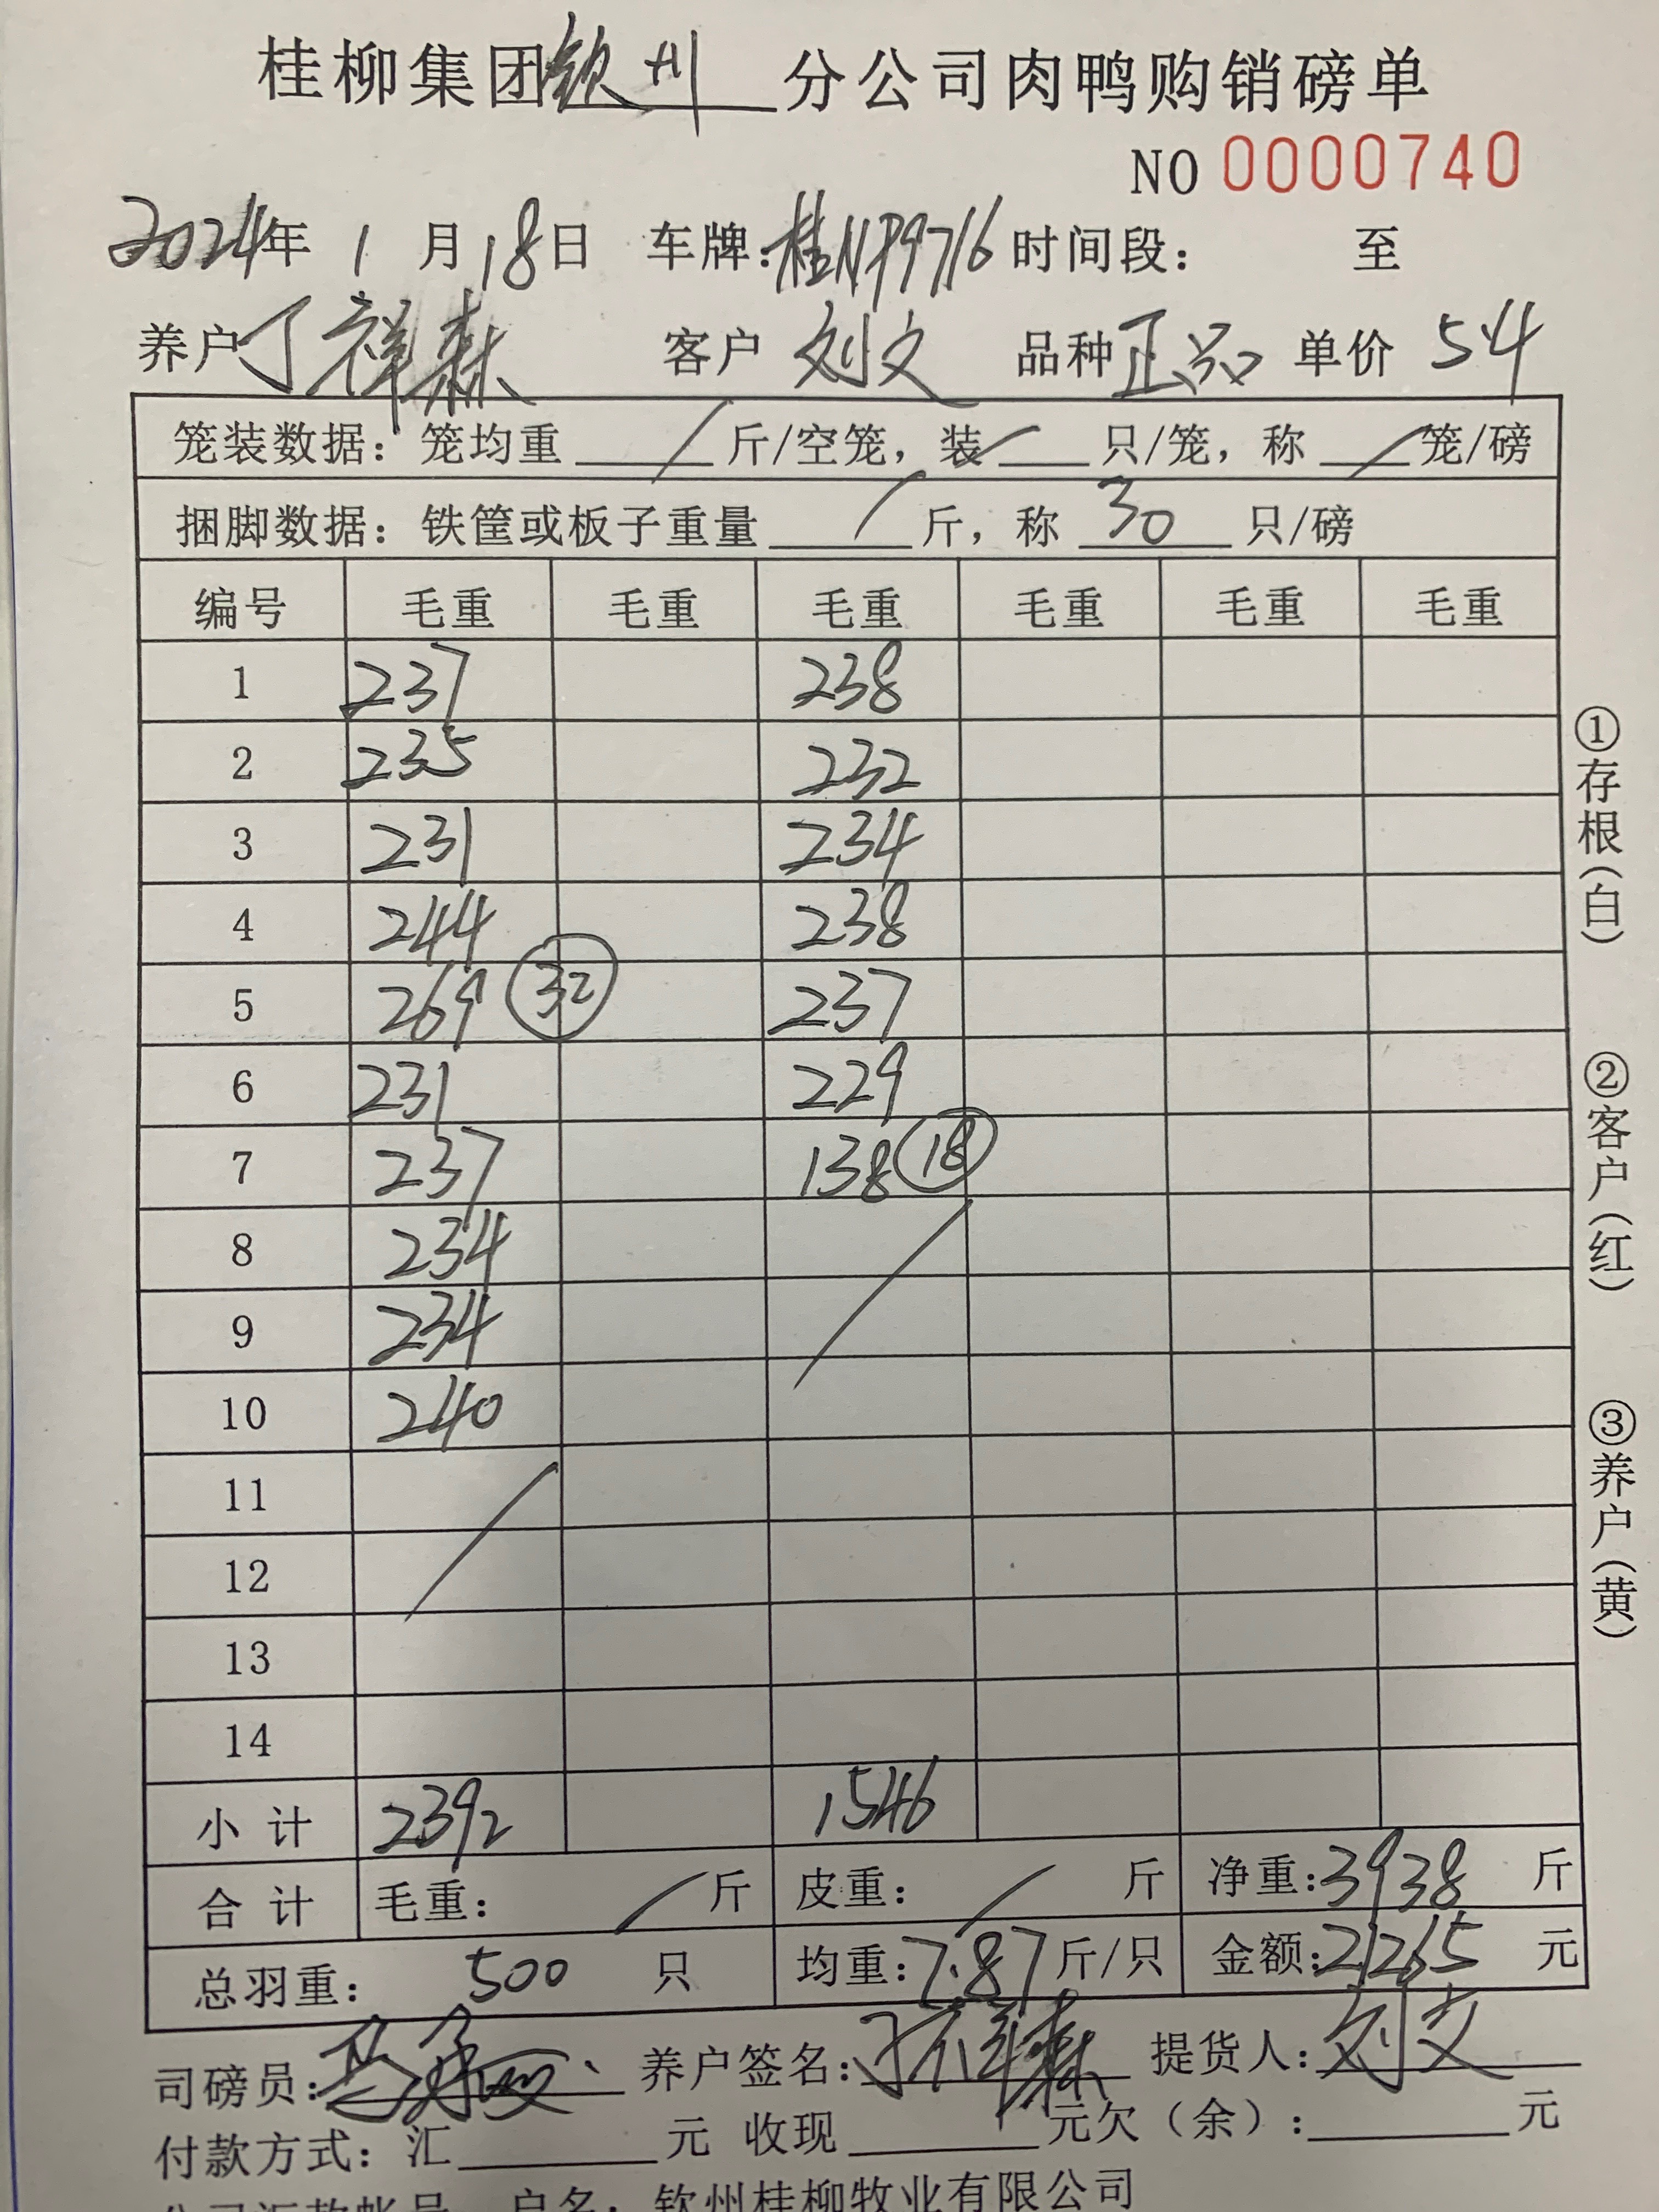 桂柳集团钦州分公司肉鸭购销磅单
NO 0000740
2024年 1 月 18 日 车牌:桂NP9716 时间段: 至
养户 丁祥森 客户 刘文 品种 正品 单价 54
笼装数据: 笼均重 / 斤/空笼, 装 / 只/笼, 称 / 笼/磅
捆脚数据: 铁筐或板子重量 / 斤, 称 30 只/磅
编号 毛重 毛重 毛重 毛重 毛重 毛重
1 237 238
2 235 232
3 231 234
4 244 238
5 269 32 237
6 231 229
7 237 138 18
8 234 /
9 234
10 240
11 /
12
13
14
小计 2392 1546
合计 毛重: / 斤 皮重: / 斤 净重: 3938 斤
总羽重: 500 只 均重: 7.87 斤/只 金额: 21265 元
司磅员: 养户签名: 丁祥森 提货人: 刘文
付款方式: 汇 元 收现 元欠(余): 元
户名: 钦州桂柳牧业有限公司
①存根(白)
②客户(红)
③养户(黄)